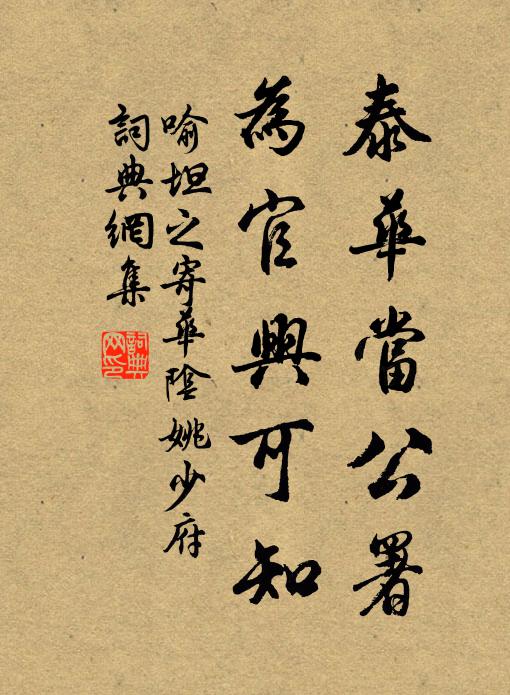 泰華當公署
為官興可知
喻坦之寄華陰姚少府
詞典網集
詞典網印